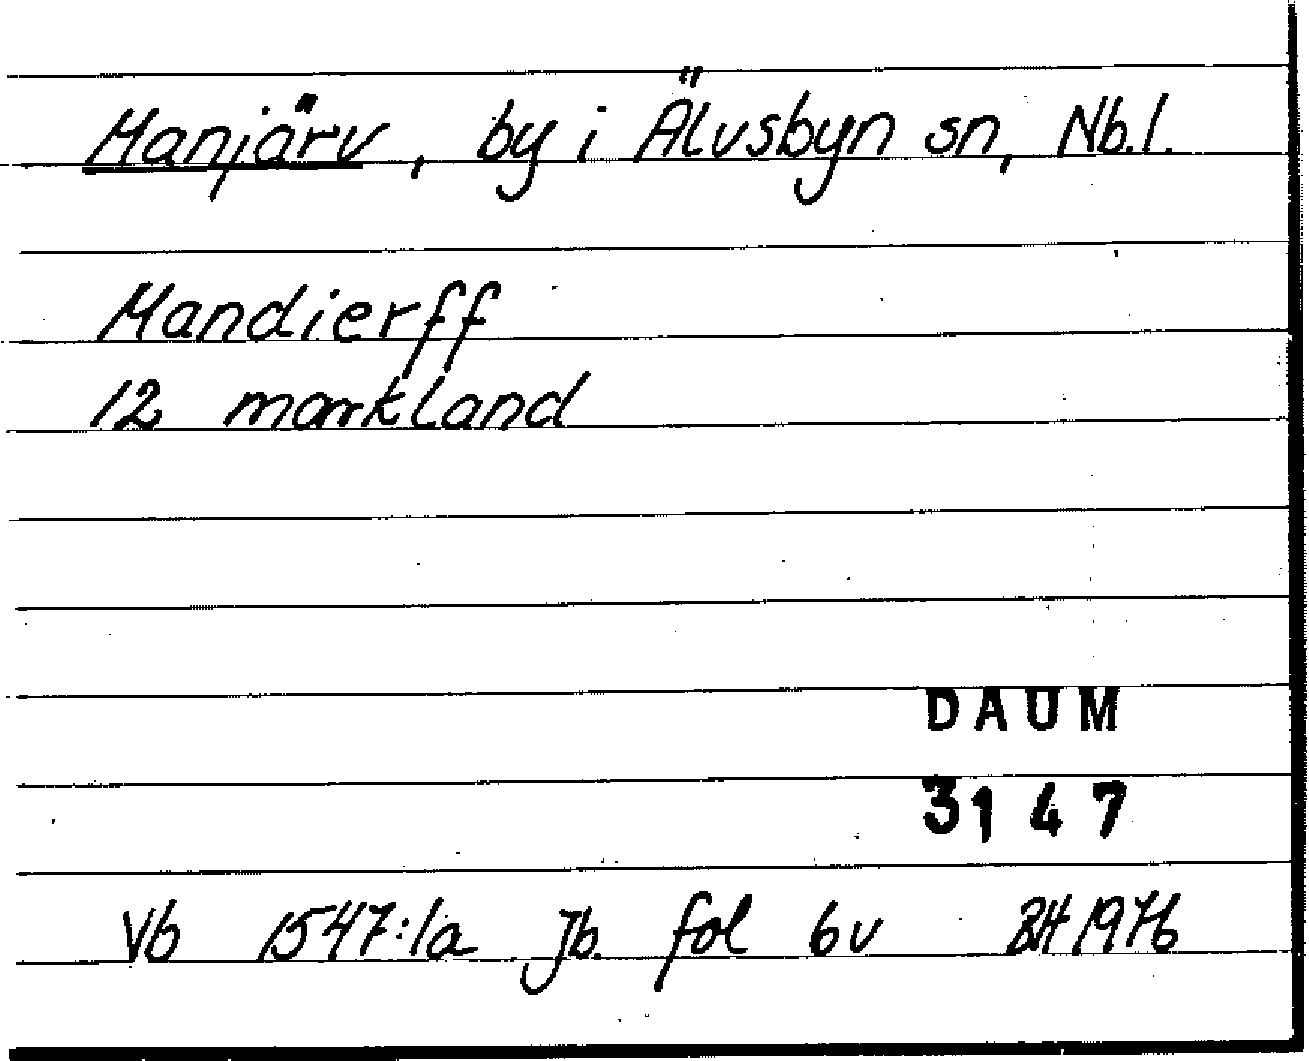 Manjärv, by i Älvsbyn sn, Nb.l.
Mandierff
12 markland
DAUM
3147
Vb 1547:1a Jb. fol 6v BH 1976